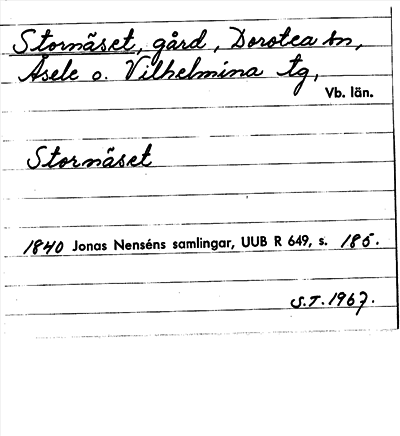 Stornäset, gård, Dorotea sn,
Åsele o. Vilhelmina tg,
Vb. län.
Stornäset
1840 Jonas Nenséns samlingar, UUB R 649, s. 185.
S.T. 1967.